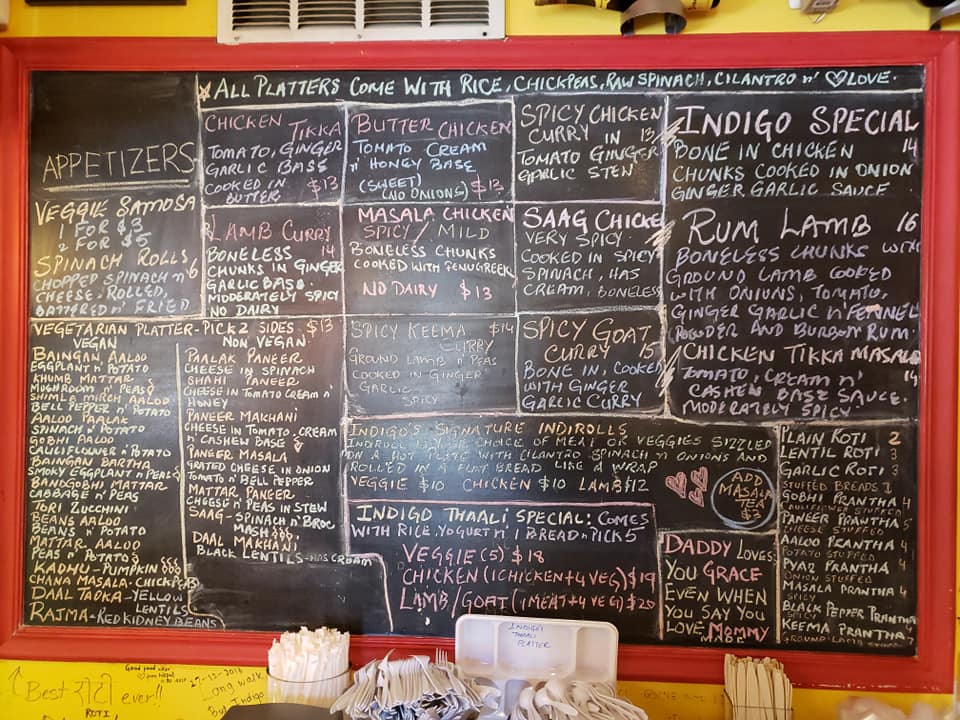 ALL PLATTERS COME WITH RICE, CHICKPEAS, RAW SPINACH, CILANTRO n' LOVE.
APPETIZERS
VEGGIE SAMOSA
1 FOR $3
2 FOR $5
SPINACH ROLLS
CHOPPED SPINACH n' 6
CHEESE, ROLLED,
BATTERED n' FRIED
CHICKEN TIKKA
TOMATO, GINGER
GARLIC BASE
COOKED IN
BUTTER $13
BUTTER CHICKEN
TOMATO CREAM
n' HONEY BASE
(SWEET)
(NO ONIONS) $13
SPICY CHICKEN
CURRY IN 13
TOMATO GINGER
GARLIC STEN
INDIGO SPECIAL
14
BONE IN CHICKEN
CHUNKS COOKED IN ONION
GINGER GARLIC SAUCE
LAMB CURRY
BONELESS 14
CHUNKS IN GINGER
GARLIC BASE.
MODERATELY SPICY
NO DAIRY
MASALA CHICKEN
SPICY / MILD
BONELESS CHUNKS
COOKED WITH FENUGREEK
NO DAIRY $13
SAAG CHICKE
VERY SPICY
COOKED IN SPICY
SPINACH, HAS
CREAM, BONELESS
RUM LAMB 16
BONELESS CHUNKS WITH
GROUND LAMB COOKED
WITH ONIONS, TOMATO,
GINGER GARLIC n' FENNEL
POWDER AND BURBON RUM.
CHICKEN TIKKA MASALA
14
TOMATO, CREAM n'
CASHEW BASE SAUCE.
MODERATELY SPICY
VEGETARIAN PLATTER-PICK 2 SIDES $13
VEGAN
BAINGAN AALOO
EGGPLANT n' POTATO
KHUMB MATTAR
MUSHROOM n' PEAS
SHIMLA MIRCH AALOO
BELL PEPPER n' POTATO
AALOO PAALAK
SPINACH n' POTATO
GOBHI AALOO
CAULIFLOWER n' POTATO
BAINGAN BARTHA
SMOKY EGGPLANT n' PEAS
BANDGOBHI MATTAR
CABBAGE n' PEAS
TORI ZUCCHINI
BEANS AALOO
BEANS n' POTATO
MATTAR AALOO
PEAS n' POTATO
KADHU-PUMPKIN
CHANA MASALA-CHICKPEAS
DAAL TADKA-YELLOW
LENTILS
RAJMA-RED KIDNEY BEANS
NON VEGAN
PAALAK PANEER
CHEESE IN SPINACH
SHAHI PANEER
CHEESE IN TOMATO CREAM n'
HONEY
PANEER MAKHANI
CHEESE IN TOMATO, CREAM
n' CASHEW BASE
PANEER MASALA
GRATED CHEESE IN ONION
TOMATO n' BELL PEPPER
MATTAR PANEER
CHEESE n' PEAS IN STEW
SAAG-SPINACH n' BROC
MASH
DAAL MAKHANI
BLACK LENTILS-HAS CREAM
SPICY KEEMA $14
CURRY
GROUND LAMB n' PEAS
COOKED IN GINGER
GARLIC
SPICY
SPICY GOAT
CURRY 15
BONE IN, COOKED
WITH GINGER
GARLIC CURRY
INDIGO'S SIGNATURE INDIROLLS
CHOICE OF MEAT OR VEGGIES SIZZLED
ON A HOT PLATE WITH CILANTRO SPINACH n' ONIONS AND
ROLLED IN A FLAT BREAD LIKE A WRAP
VEGGIE $10 CHICKEN $10 LAMB $12
ADD
MASALA
TEA
$3
INDIGO THAALI SPECIAL: COMES
WITH RICE, YOGURT n' 1 BREAD n' PICK 5
VEGGIE (5) $18
CHICKEN (1 CHICKEN+4 VEG) $19
LAMB/GOAT (1 MEAT+4 VEG) $20
DADDY LOVES
YOU GRACE
EVEN WHEN
YOU SAY YOU
LOVE MOMMY
MORE
PLAIN ROTI 2
LENTIL ROTI 3
GARLIC ROTI 3
STUFFED BREADS
GOBHI PRANTHA 4
CAULIFLOWER STUFFED
PANEER PRANTHA 5
AALOO PRANTHA 4
POTATO STUFFED
PYAZ PRANTHA 4
ONION STUFFED
MASALA PRANTHA
SPICY
BLACK PEPPER PRANTHA
KEEMA PRANTHA
GROUND LAMB
INDIGO
THAALI
PLATTER
Best रोटी ever!!
ROTI
Long walk
But Indigo